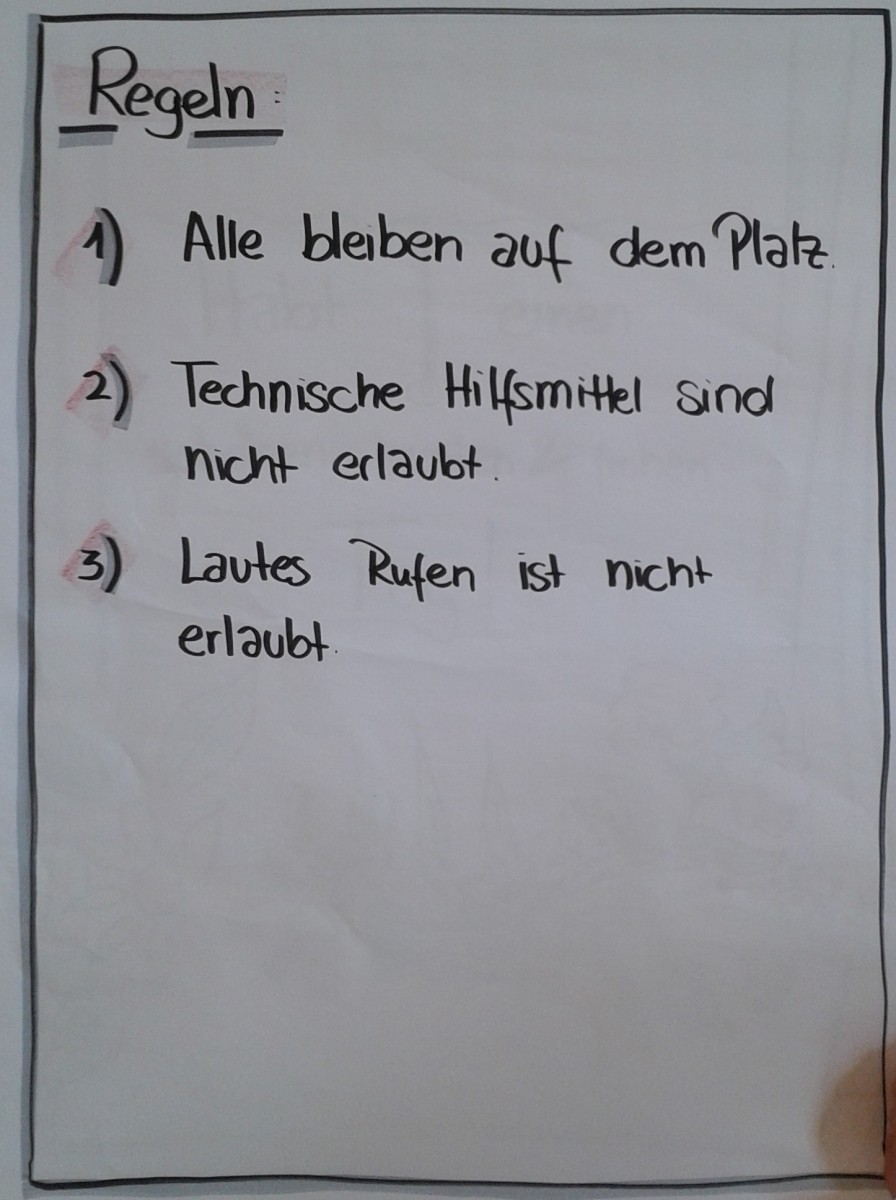 Regeln:
1) Alle bleiben auf dem Platz.
2) Technische Hilfsmittel sind
nicht erlaubt.
3) Lautes Rufen ist nicht
erlaubt.